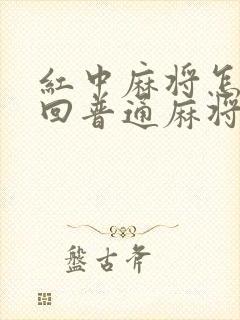 红中麻将怎
回普通麻将
盤古斧